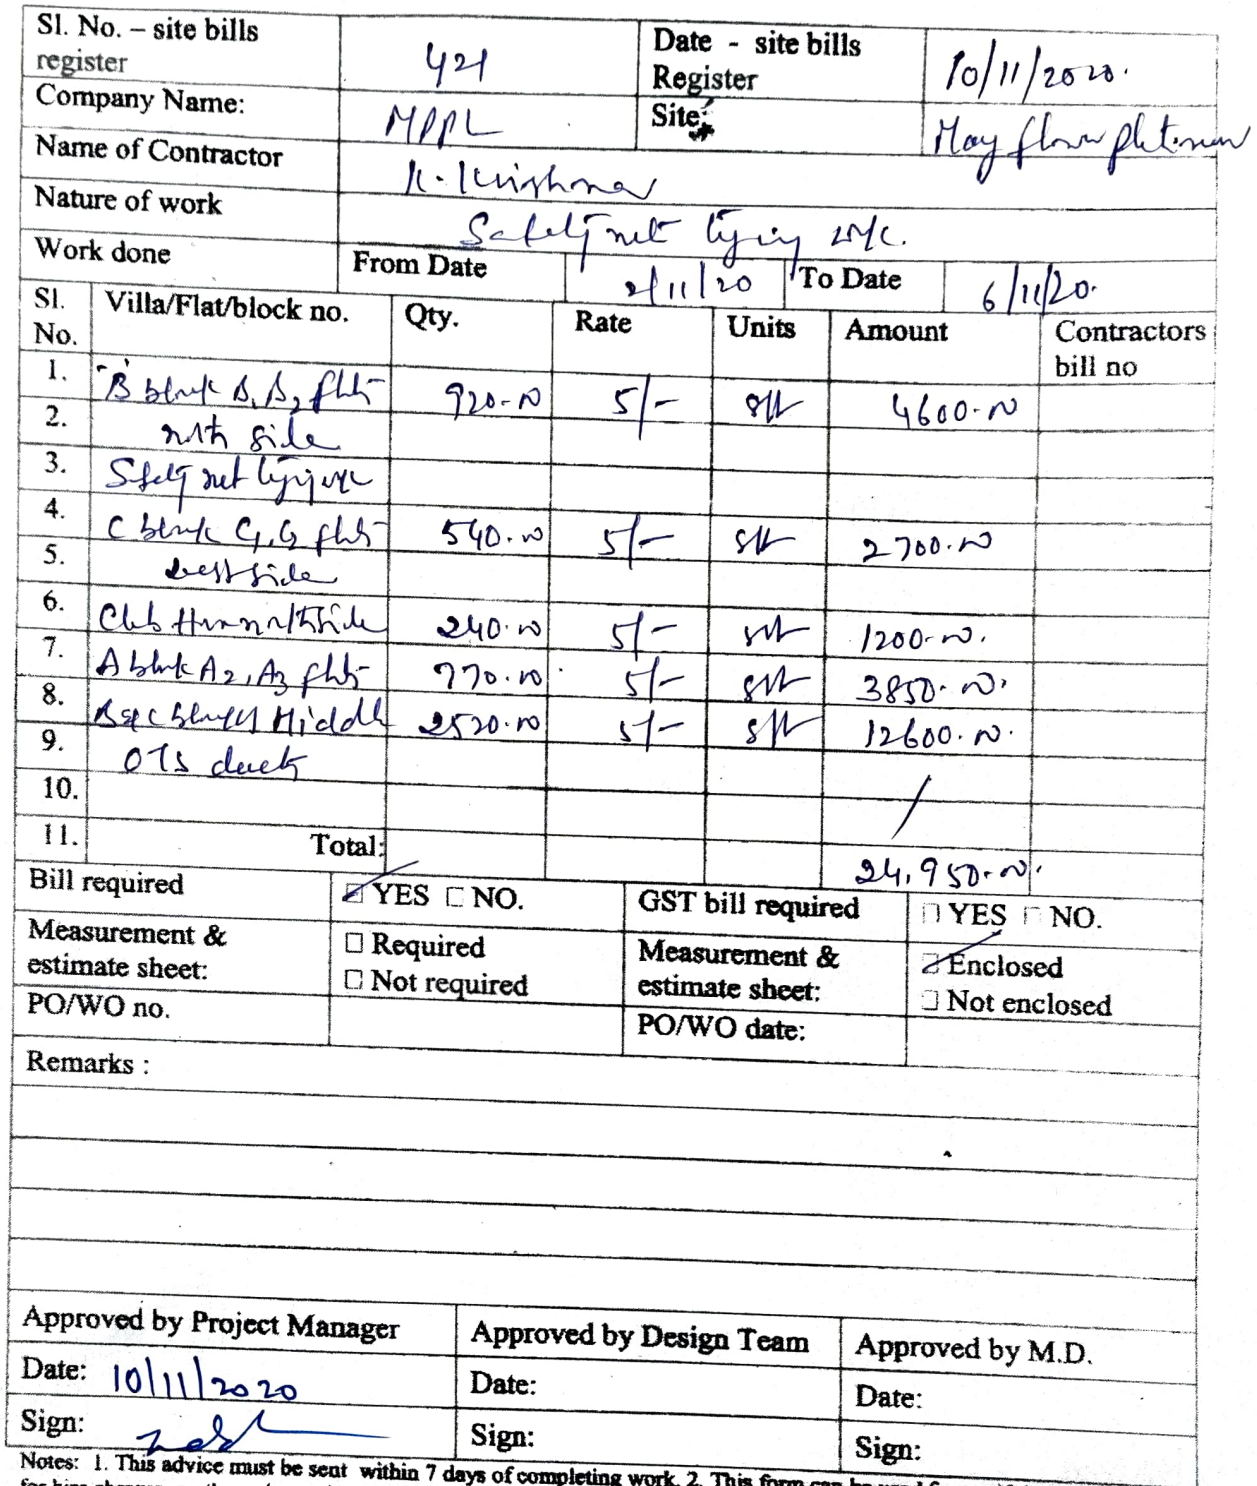 Sl. No. – site bills register 421 Date - site bills Register 10/11/2020.
Company Name: MPPL Site: May flower platinum
Name of Contractor K. Krishna
Nature of work Safety net tying work.
Work done From Date 2/11/20 To Date 6/11/20.
Sl. No. Villa/Flat/block no. Qty. Rate Units Amount Contractors bill no
1. "B block B1, B2 flats 920-00 5/- sft 4600-00
2. north side
3. Safety net tying work
4. C block flats 540.00 5/- sft 2700.00
5. west side
6. Club House north side 240.00 5/- sft 1200-00.
7. A block A2, A3 flats 770.00 5/- sft 3850.00.
8. B & C block Middle 2520.00 5/- sft 12600.00.
9. OTS duct
10.
11. Total: 24,950.00.
Bill required YES NO. GST bill required YES NO.
Measurement & estimate sheet: Required Not required Measurement & estimate sheet: Enclosed Not enclosed
PO/WO no. PO/WO date:
Remarks :
Approved by Project Manager Approved by Design Team Approved by M.D.
Date: 10/11/2020 Date: Date:
Sign: Sign: Sign:
Notes: 1. This advice must be sent within 7 days of completing work. 2. This form can be used